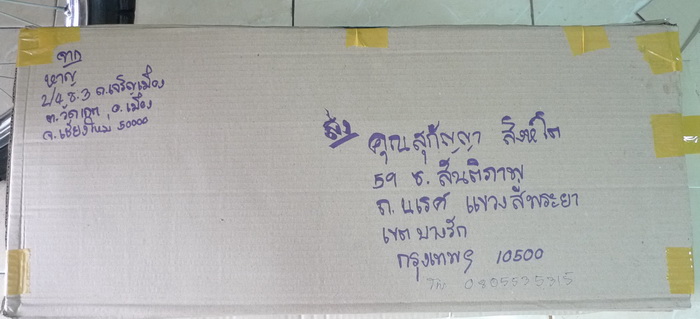 จาก
หาญ
2/4 ซ.3 ถ.เจริญเมือง
ต.วัดเกต อ.เมือง
จ.เชียงใหม่ 50000
ส่ง
คุณสุกัญญา สิงห์โต
59 ซ. สันติภาพ
ถ. นเรศ แขวงสี่พระยา
เขต บางรัก
กรุงเทพฯ 10500
โทร 0805535315